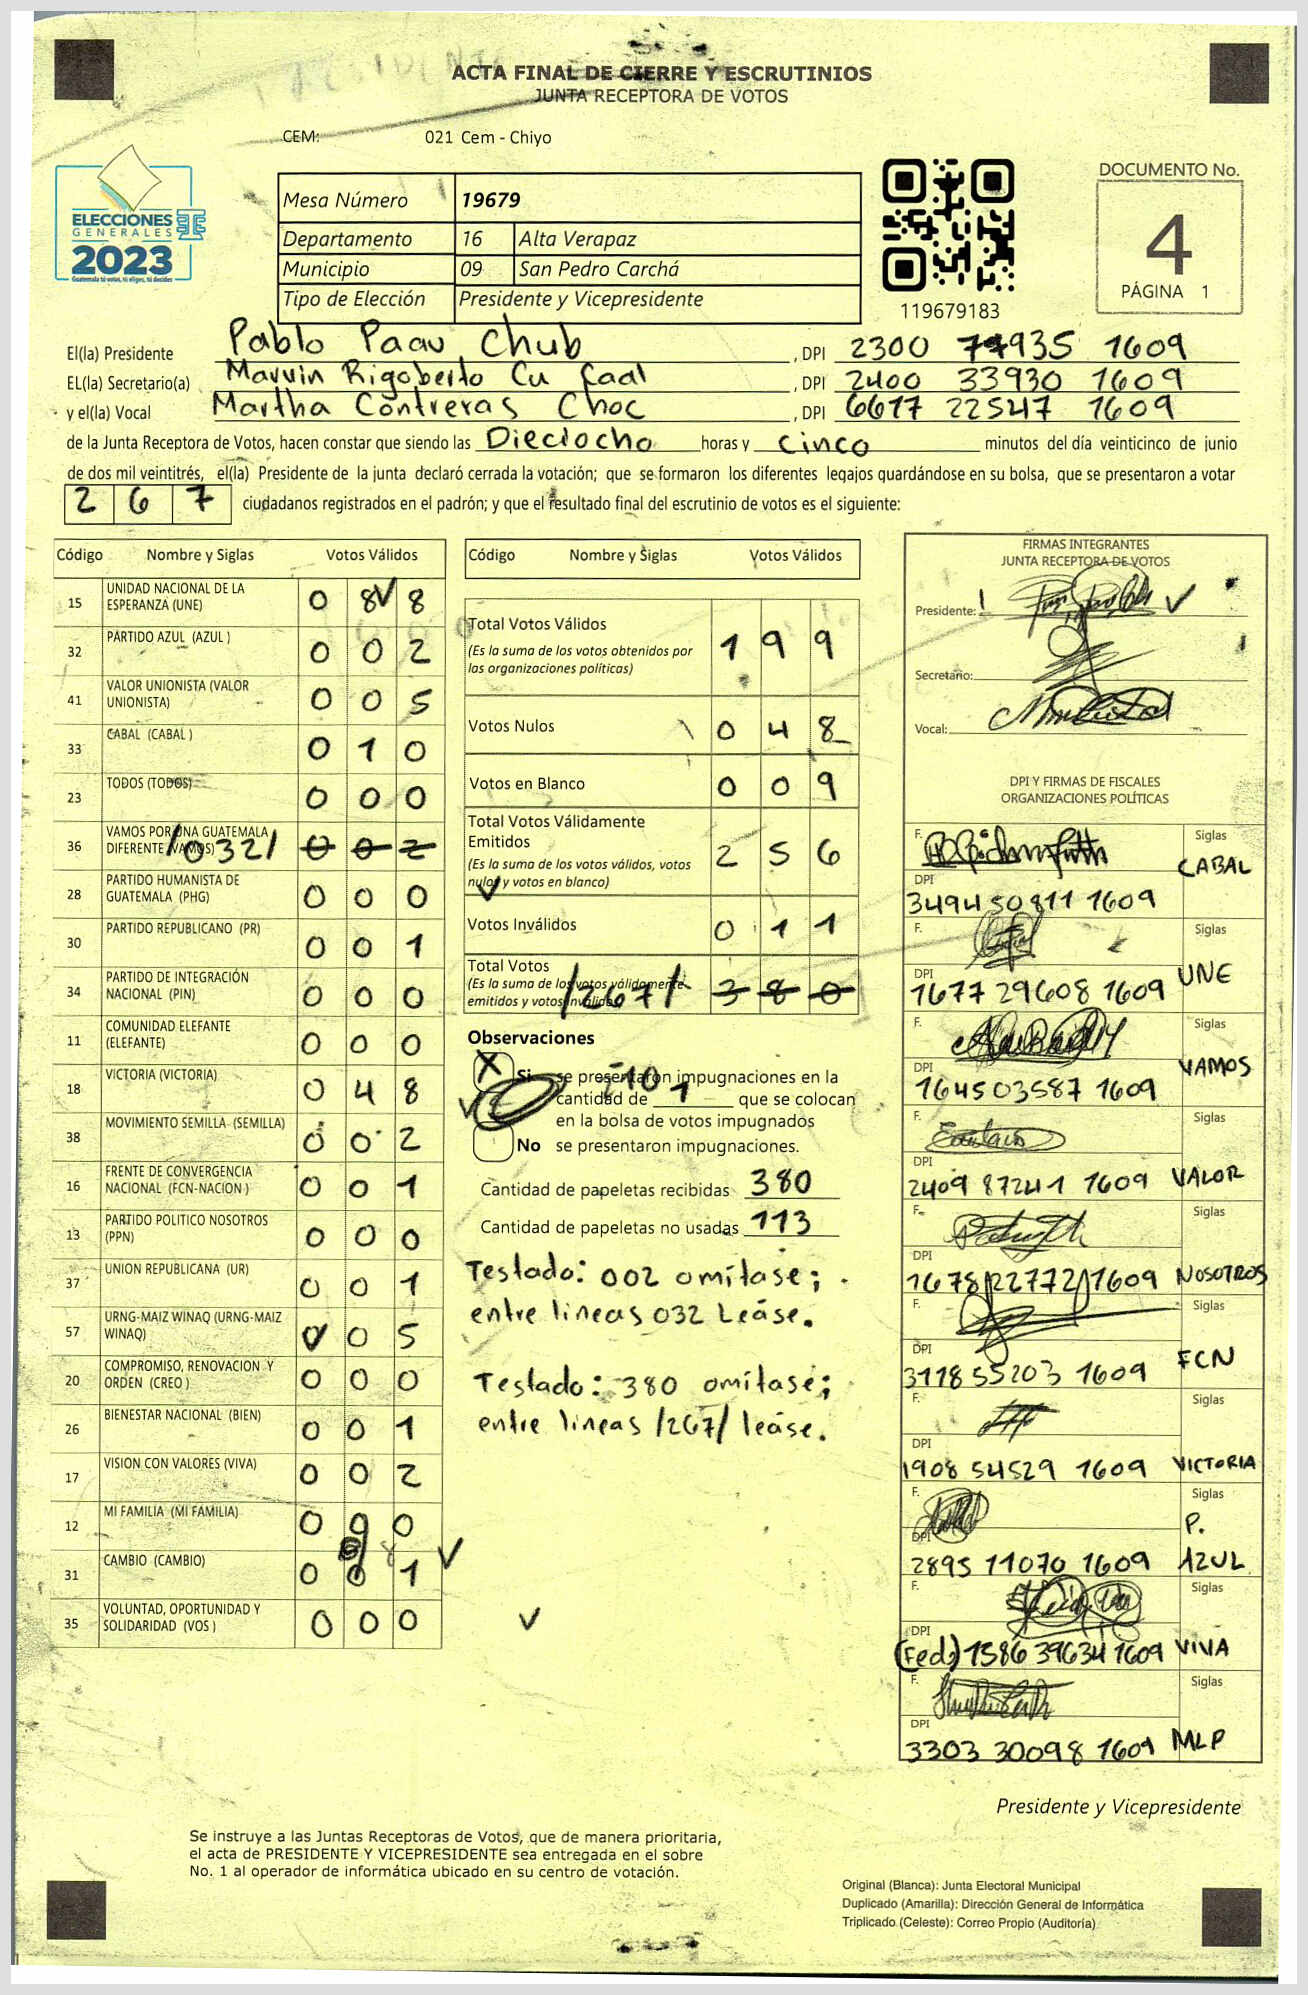 ACTA FINAL DE CIERRE Y ESCRUTINIOS
JUNTA RECEPTORA DE VOTOS
CEM: 021 Cem - Chiyo
ELECCIONES
GENERALES
2023
Guatemala tú votas, tú eliges, tú decides
Mesa Número 19679
Departamento 16 Alta Verapaz
Municipio 09 San Pedro Carchá
Tipo de Elección Presidente y Vicepresidente
119679183
DOCUMENTO No.
4
PÁGINA 1
El(la) Presidente Pablo Paau Chub , DPI 2300 77935 1609
EL(la) Secretario(a) Marvin Rigoberto Cu Caal , DPI 2400 33930 1609
y el(la) Vocal Martha Contreras Choc , DPI 6617 22547 1609
de la Junta Receptora de Votos, hacen constar que siendo las Dieciocho horas y cinco minutos del día veinticinco de junio
de dos mil veintitrés, el(la) Presidente de la junta declaró cerrada la votación; que se formaron los diferentes legajos guardándose en su bolsa, que se presentaron a votar
267 ciudadanos registrados en el padrón; y que el resultado final del escrutinio de votos es el siguiente:
Código Nombre y Siglas Votos Válidos
15 UNIDAD NACIONAL DE LA ESPERANZA (UNE) 0 8 8
32 PARTIDO AZUL (AZUL ) 0 0 2
41 VALOR UNIONISTA (VALOR UNIONISTA) 0 0 5
33 CABAL (CABAL ) 0 1 0
23 TODOS (TODOS) 0 0 0
36 VAMOS POR UNA GUATEMALA DIFERENTE (VAMOS) /032/ 0 0 2
28 PARTIDO HUMANISTA DE GUATEMALA (PHG) 0 0 0
30 PARTIDO REPUBLICANO (PR) 0 0 1
34 PARTIDO DE INTEGRACIÓN NACIONAL (PIN) 0 0 0
11 COMUNIDAD ELEFANTE (ELEFANTE) 0 0 0
18 VICTORIA (VICTORIA) 0 4 8
38 MOVIMIENTO SEMILLA (SEMILLA) 0 0 2
16 FRENTE DE CONVERGENCIA NACIONAL (FCN-NACION ) 0 0 1
13 PARTIDO POLITICO NOSOTROS (PPN) 0 0 0
37 UNION REPUBLICANA (UR) 0 0 1
57 URNG-MAIZ WINAQ (URNG-MAIZ WINAQ) 0 0 5
20 COMPROMISO, RENOVACION Y ORDEN (CREO ) 0 0 0
26 BIENESTAR NACIONAL (BIEN) 0 0 1
17 VISION CON VALORES (VIVA) 0 0 2
12 MI FAMILIA (MI FAMILIA) 0 0 0
31 CAMBIO (CAMBIO) 0 0 1
35 VOLUNTAD, OPORTUNIDAD Y SOLIDARIDAD (VOS ) 0 0 0
Código Nombre y Siglas Votos Válidos
Total Votos Válidos 1 9 9
(Es la suma de los votos obtenidos por
las organizaciones políticas)
Votos Nulos 0 4 8
Votos en Blanco 0 0 9
Total Votos Válidamente
Emitidos 2 5 6
(Es la suma de los votos válidos, votos
nulos y votos en blanco)
Votos Inválidos 0 1 1
Total Votos
(Es la suma de los votos válidamente
emitidos y votos inválidos) /267/ 3 8 0
Observaciones
X Si se presentaron impugnaciones en la
cantidad de 1 que se colocan
en la bolsa de votos impugnados
No se presentaron impugnaciones.
Cantidad de papeletas recibidas 380
Cantidad de papeletas no usadas 113
Testado: 002 omítase;
entre lineas 032 Leáse.
Testado: 380 omitase;
entre lineas /267/ leáse.
FIRMAS INTEGRANTES
JUNTA RECEPTORA DE VOTOS
Presidente:
Secretario:
Vocal:
DPI Y FIRMAS DE FISCALES
ORGANIZACIONES POLÍTICAS
F. Siglas CABAL
DPI 3494 50811 1609
F. Siglas UNE
DPI 1677 29608 1609
F. Siglas VAMOS
DPI 1645 03587 1609
F. Siglas VALOR
DPI 2409 87241 1609
F. Siglas NOSOTROS
DPI 1678 22772 1609
F. Siglas FCN
DPI 3118 55203 1609
F. Siglas VICTORIA
DPI 1908 54529 1609
F. Siglas P. AZUL
DPI 2895 11070 1609
F. Siglas VIVA
DPI (Fed.) 1586 39634 1609
F. Siglas MLP
DPI 3303 30098 1609
Presidente y Vicepresidente
Se instruye a las Juntas Receptoras de Votos, que de manera prioritaria,
el acta de PRESIDENTE Y VICEPRESIDENTE sea entregada en el sobre
No. 1 al operador de informática ubicado en su centro de votación.
Original (Blanca): Junta Electoral Municipal
Duplicado (Amarilla): Dirección General de Informática
Triplicado (Celeste): Correo Propio (Auditoría)